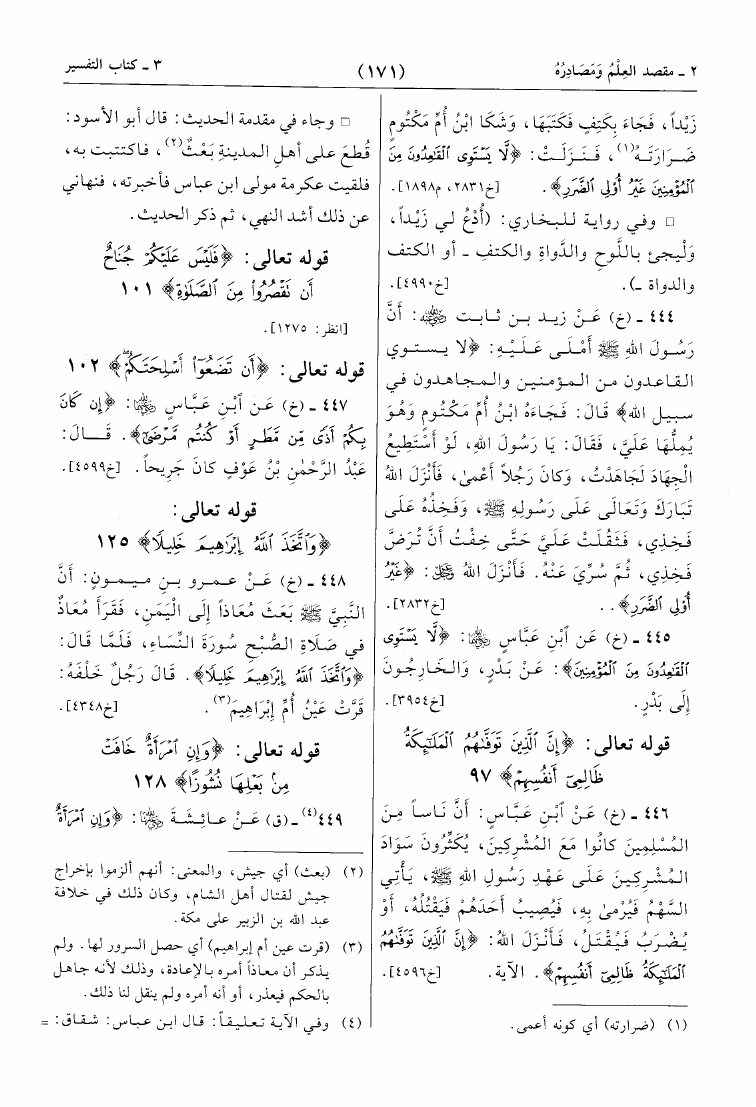 ٢ ـ مقصد العِلْمُ وَمَصَادِرُهُ
(١٧١)
٣ ـ كتاب التفسير
زَيْداً، فَجَاءَ بِكَتِفٍ فَكَتَبَهَا، وَشَكَا ابْنُ أُمِّ مَكْتُومٍ
ضَرَارَتَهُ(١)، فَنَزَلَتْ: ﴿لَّا يَسْتَوِى الْقَاعِدُونَ مِنَ
الْمُؤْمِنِينَ غَيْرُ أُوْلِى الضَّرَرِ﴾. [خ٢٨٣١، م١٨٩٨].
□ وفي رواية للبخاري: (أُدْعُ لي زَيْداً،
وَلْيجئ باللَّوحِ والدَّواةِ والكتفِ ـ أو الكتف
والدواة ـ). [خ٤٩٩٠].
٤٤٤ ـ (خ) عَنْ زيد بن ثابت ﷺ: أَنَّ
رَسُولَ اللهِ ﷺ أَمْلَى عَلَيْهِ: ﴿لا يستوي
القاعدون من المؤمنين والمجاهدون في
سبيل الله﴾ قَالَ: فَجَاءَهُ ابْنُ أُمِّ مَكْتُومٍ وَهُوَ
يُمِلُّهَا عَلَيَّ، فَقَالَ: يَا رَسُولَ اللهِ، لَوْ أَسْتَطِيعُ
الْجِهَادَ لَجَاهَدْتُ، وَكَانَ رَجُلاً أَعْمىٰ، فَأَنْزَلَ اللهُ
تَبَارَكَ وَتَعَالَى عَلَى رَسُولِهِ ﷺ، وَفَخِذُهُ عَلَى
فَخِذِي، فَثَقُلَتْ عَلَيَّ حَتَّى خِفْتُ أَنْ تُرَضَّ
فَخِذِي، ثُمَّ سُرِّيَ عَنْهُ. فَأَنْزَلَ اللهُ ﷻ: ﴿غَيْرُ
أُوْلِى الضَّرَرِ﴾.. [خ٢٨٣٢].
٤٤٥ ـ (خ) عَنِ ابْنِ عَبَّاسٍ ﷺ: ﴿لَّا يَسْتَوِى
الْقَاعِدُونَ مِنَ الْمُؤْمِنِينَ﴾: عَنْ بَدْرٍ، وَالخَارِجُونَ
إِلَى بَدْرٍ. [خ٣٩٥٤].
قوله تعالى: ﴿إِنَّ الَّذِينَ تَوَفَّاهُمُ الْمَلَائِكَةُ
ظَالِمِى أَنفُسِهِمْ﴾ ٩٧
٤٤٦ ـ (خ) عَنْ ابْنِ عَبَّاسٍ: أَنَّ نَاساً مِنَ
المُسْلِمِينَ كَانُوا مَعَ الْمُشْرِكِينَ، يُكَثِّرُونَ سَوَادَ
المُشْرِكِينَ عَلَى عَهْدِ رَسُولِ اللهِ ﷺ، يَأْتِي
السَّهْمُ فَيُرْمىٰ بِهِ، فَيُصِيبُ أَحَدَهُمْ فَيَقْتُلُهُ، أَوْ
يُضْرَبُ فَيُقْتَلُ، فَأَنْزَلَ اللهُ: ﴿إِنَّ الَّذِينَ تَوَفَّاهُمُ
الْمَلَائِكَةُ ظَالِمِى أَنفُسِهِمْ﴾. الآية. [خ٤٥٩٦].
(١) (ضرارته) أي كونه أعمى.
□ وجاء في مقدمة الحديث: قال أبو الأسود:
قُطعَ على أهلِ المدينةِ بَعْثٌ(٢)، فاكتتبت به،
فلقيت عكرمة مولى ابن عباس فأخبرته، فنهاني
عن ذلك أشد النهي، ثم ذكر الحديث.
قوله تعالى: ﴿فَلَيْسَ عَلَيْكُمْ جُنَاحٌ
أَن تَقْصُرُوا مِنَ الصَّلَوٰةِ﴾ ١٠١
[انظر: ١٢٧٥].
قوله تعالى: ﴿أَن تَضَعُوٓا أَسْلِحَتَكُمْ﴾ ١٠٢
٤٤٧ ـ (خ) عَنِ ابْنِ عَبَّاسٍ ﷺ: ﴿إِن كَانَ
بِكُمْ أَذًى مِّن مَّطَرٍ أَوْ كُنتُم مَّرْضَىٰ﴾. قَالَ:
عَبْدُ الرَّحْمٰنِ بْنُ عَوْفٍ كَانَ جَرِيحاً. [خ٤٥٩٩].
قوله تعالى:
﴿وَاتَّخَذَ اللَّهُ إِبْرَاهِيمَ خَلِيلًا﴾ ١٢٥
٤٤٨ ـ (خ) عَنْ عمرو بنِ ميمونٍ: أَنَّ
النَّبِيَّ ﷺ بَعَثَ مُعَاذاً إِلَى الْيَمَنِ، فَقَرَأَ مُعَاذٌ
في صَلَاةِ الصُّبْحِ سُورَةَ النِّسَاءِ، فَلَمَّا قَالَ:
﴿وَاتَّخَذَ اللَّهُ إِبْرَاهِيمَ خَلِيلًا﴾. قَالَ رَجُلٌ خَلْفَهُ:
قَرَّتْ عَيْنُ أُمِّ إِبْرَاهِيمَ(٣). [خ٤٣٤٨].
قوله تعالى: ﴿وَإِنِ امْرَأَةٌ خَافَتْ
مِنۢ بَعْلِهَا نُشُوزًا﴾ ١٢٨
٤٤٩(٤) ـ (ق) عَنْ عائِشَةَ ﷺ: ﴿وَإِنِ امْرَأَةٌ
(٢) (بعث) أي جيش، والمعنى: أنهم ألزموا بإخراج
جيش لقتال أهل الشام، وكان ذلك في خلافة
عبد الله بن الزبير على مكة.
(٣) (قرت عين أم إبراهيم) أي حصل السرور لها. ولم
يذكر أن معاذاً أمره بالإعادة، وذلك لأنه جاهل
بالحكم فيعذر، أو أنه أمره ولم ينقل لنا ذلك.
(٤) وفي الآية تعليقاً: قال ابن عباس: شقاق: =